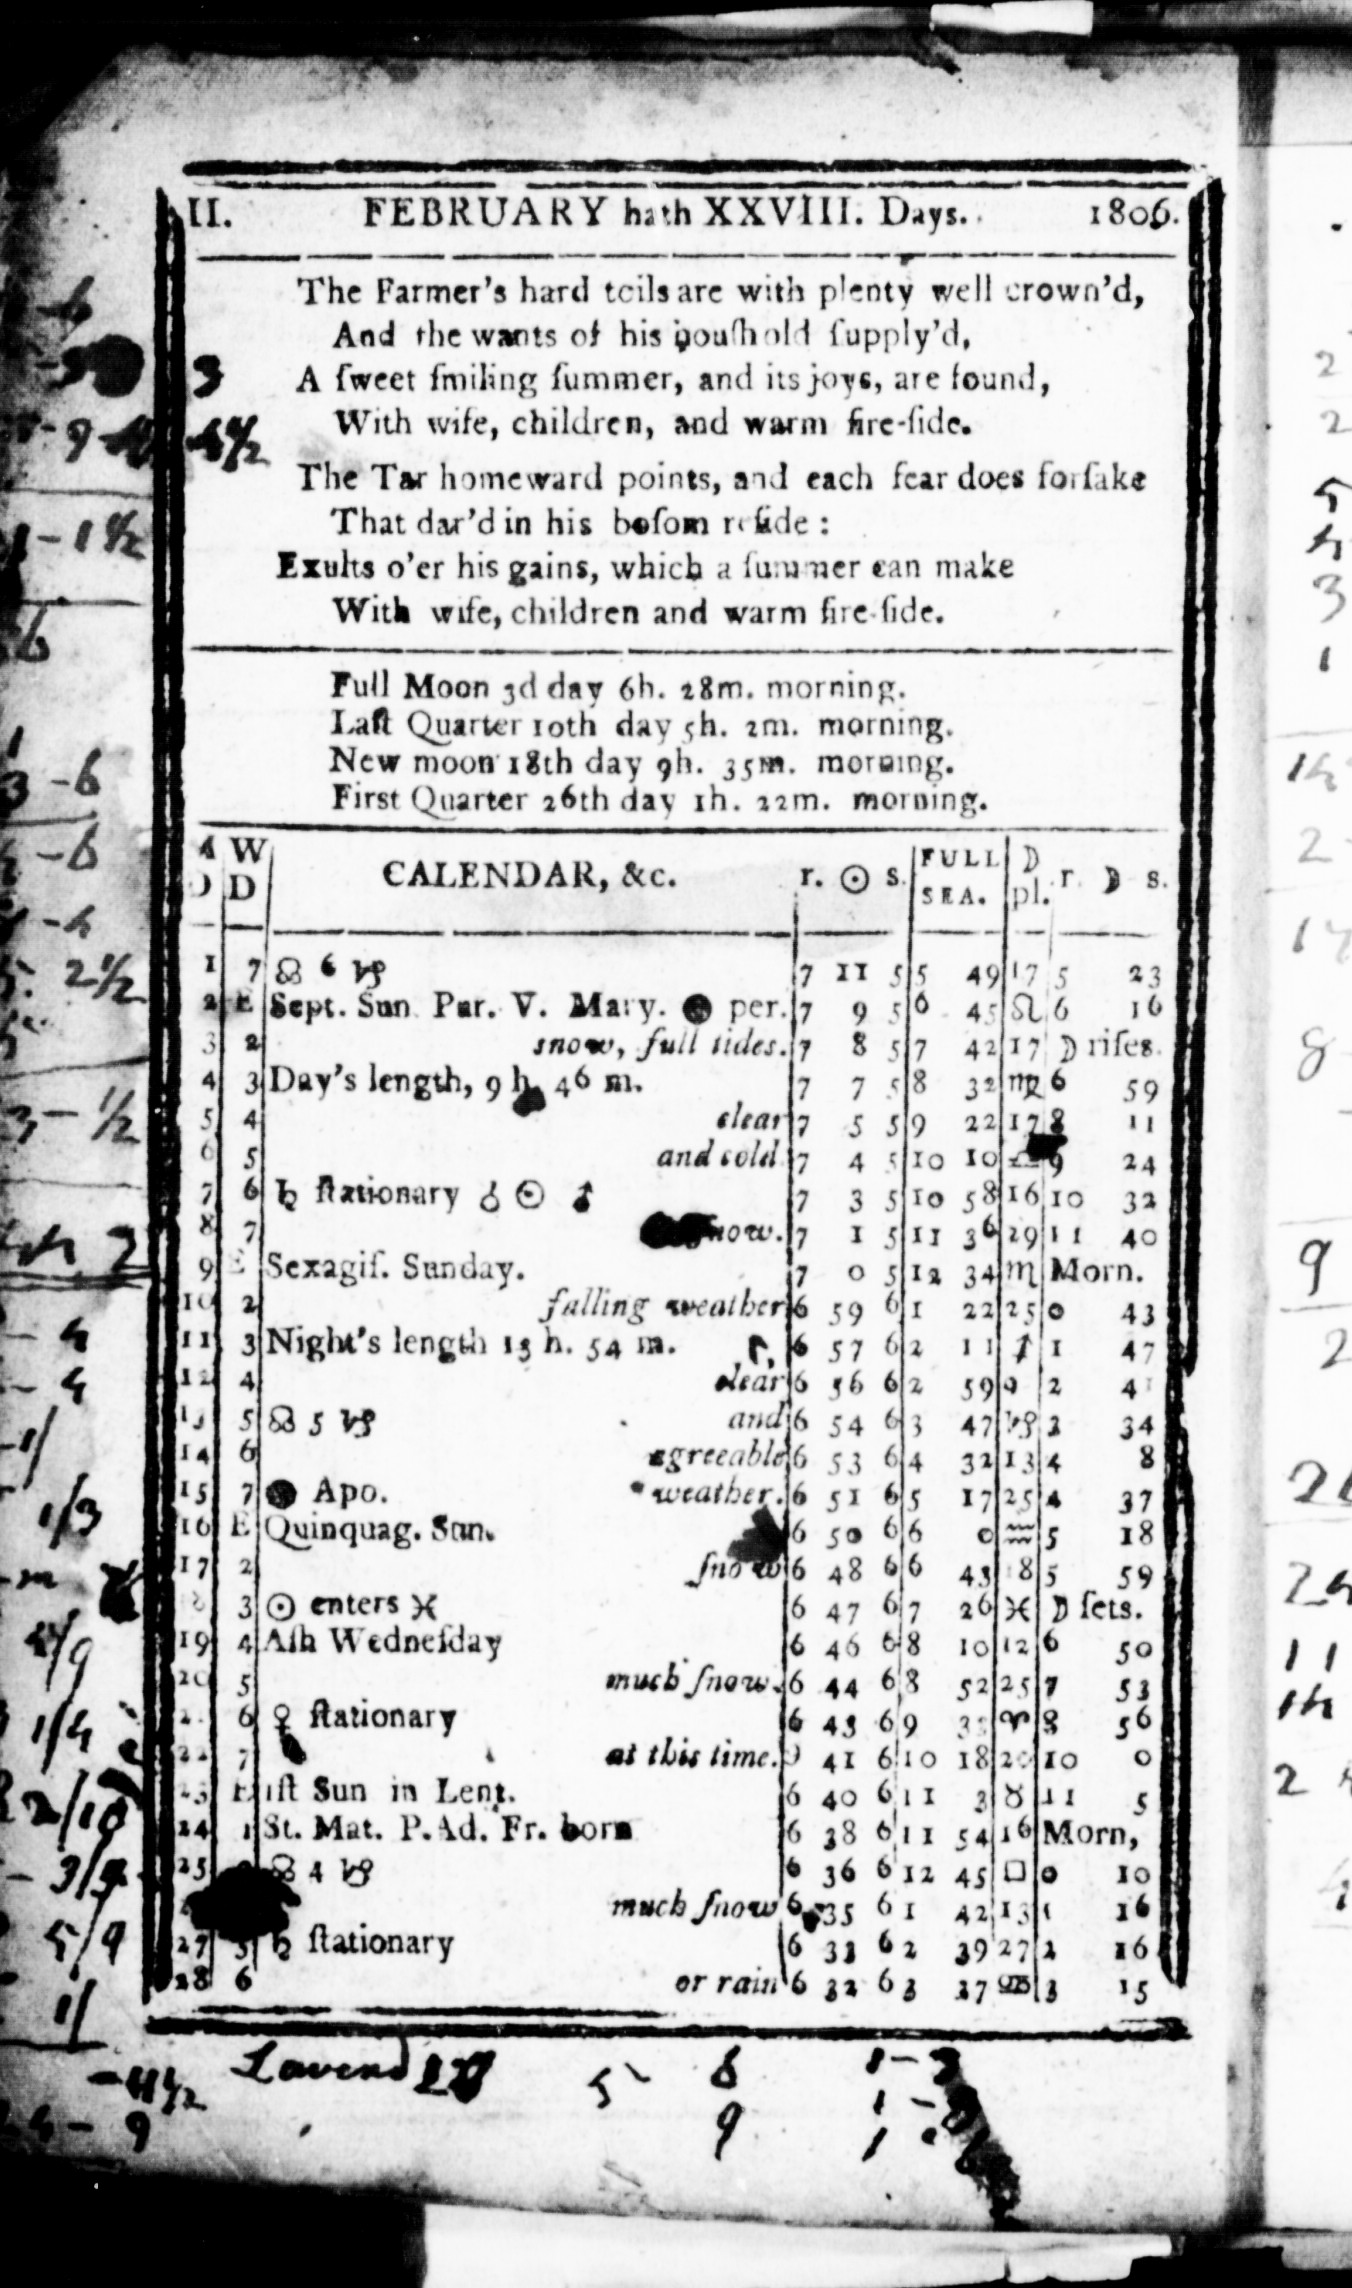 II. FEBRUARY hath XXVIII. Days. 1806.
The Farmer's hard toils are with plenty well crown'd,
And the wants of his houſhold ſupply'd,
A ſweet ſmiling ſummer, and its joys, are found,
With wife, children, and warm fire-ſide.
The Tar homeward points, and each fear does forſake
That dar'd in his boſom reſide :
Exults o'er his gains, which a ſummer can make
With wife, children and warm fire-ſide.
Full Moon 3d day 6h. 28m. morning.
Laſt Quarter 10th day 5h. 2m. morning.
New moon 18th day 9h. 35m. morning.
First Quarter 26th day 1h. 22m. morning.
M D W D CALENDAR, &c. r. ☉ s. FULL SEA. ☽ pl. r. ☽ s.
1 7 ☊ 6 ♑ 7 11 5 5 49 17 5 23
2 E Sept. Sun. Pur. V. Mary. per. 7 9 5 6 45 ♌ 6 16
3 2 snow, full tides. 7 8 5 7 42 17 ☽ riſes.
4 3 Day's length, 9 h. 46 m. 7 7 5 8 32 ♍ 6 59
5 4 clear 7 5 5 9 22 17 8 11
6 5 and cold 7 4 5 10 10 ♎ 9 24
7 6 ♄ ſtationary ☌ ☉ ♂ 7 3 5 10 58 16 10 32
8 7 snow. 7 1 5 11 36 29 11 40
9 E Sexagiſ. Sunday. 7 0 5 12 34 ♏ Morn.
10 2 falling weather 6 59 6 1 22 25 0 43
11 3 Night's length 13 h. 54 m. 6 57 6 2 11 ♐ 1 47
12 4 clear 6 56 6 2 59 9 2 41
13 5 ☊ 5 ♑ and 6 54 6 3 47 ♑ 3 34
14 6 agreeable 6 53 6 4 32 13 4 8
15 7 Apo. weather. 6 51 6 5 17 25 4 37
16 E Quinquag. Sun. 6 50 6 6 0 ♒ 5 18
17 2 ſnow 6 48 6 6 43 18 5 59
18 3 ☉ enters ♓ 6 47 6 7 26 ♓ ☽ ſets.
19 4 Aſh Wedneſday 6 46 6 8 10 12 6 50
20 5 much ſnow. 6 44 6 8 52 25 7 53
6 ♀ ſtationary 6 43 6 9 35 ♈ 8 56
22 7 at this time. 41 6 10 18 10 0
23 E 1ſt Sun in Lent. 6 40 6 11 3 ♉ 11 5
24 St. Mat. P. Ad. Fr. born 6 38 6 11 54 16 Morn,
25 ☊ 4 ♑ 6 36 6 12 45 □ 0 10
much ſnow 6 35 6 1 42 13 1 16
27 5 ♄ ſtationary 6 33 6 2 39 27 2 16
28 6 or rain 6 32 6 3 37 ♋ 3 15
5 8 1-3
9